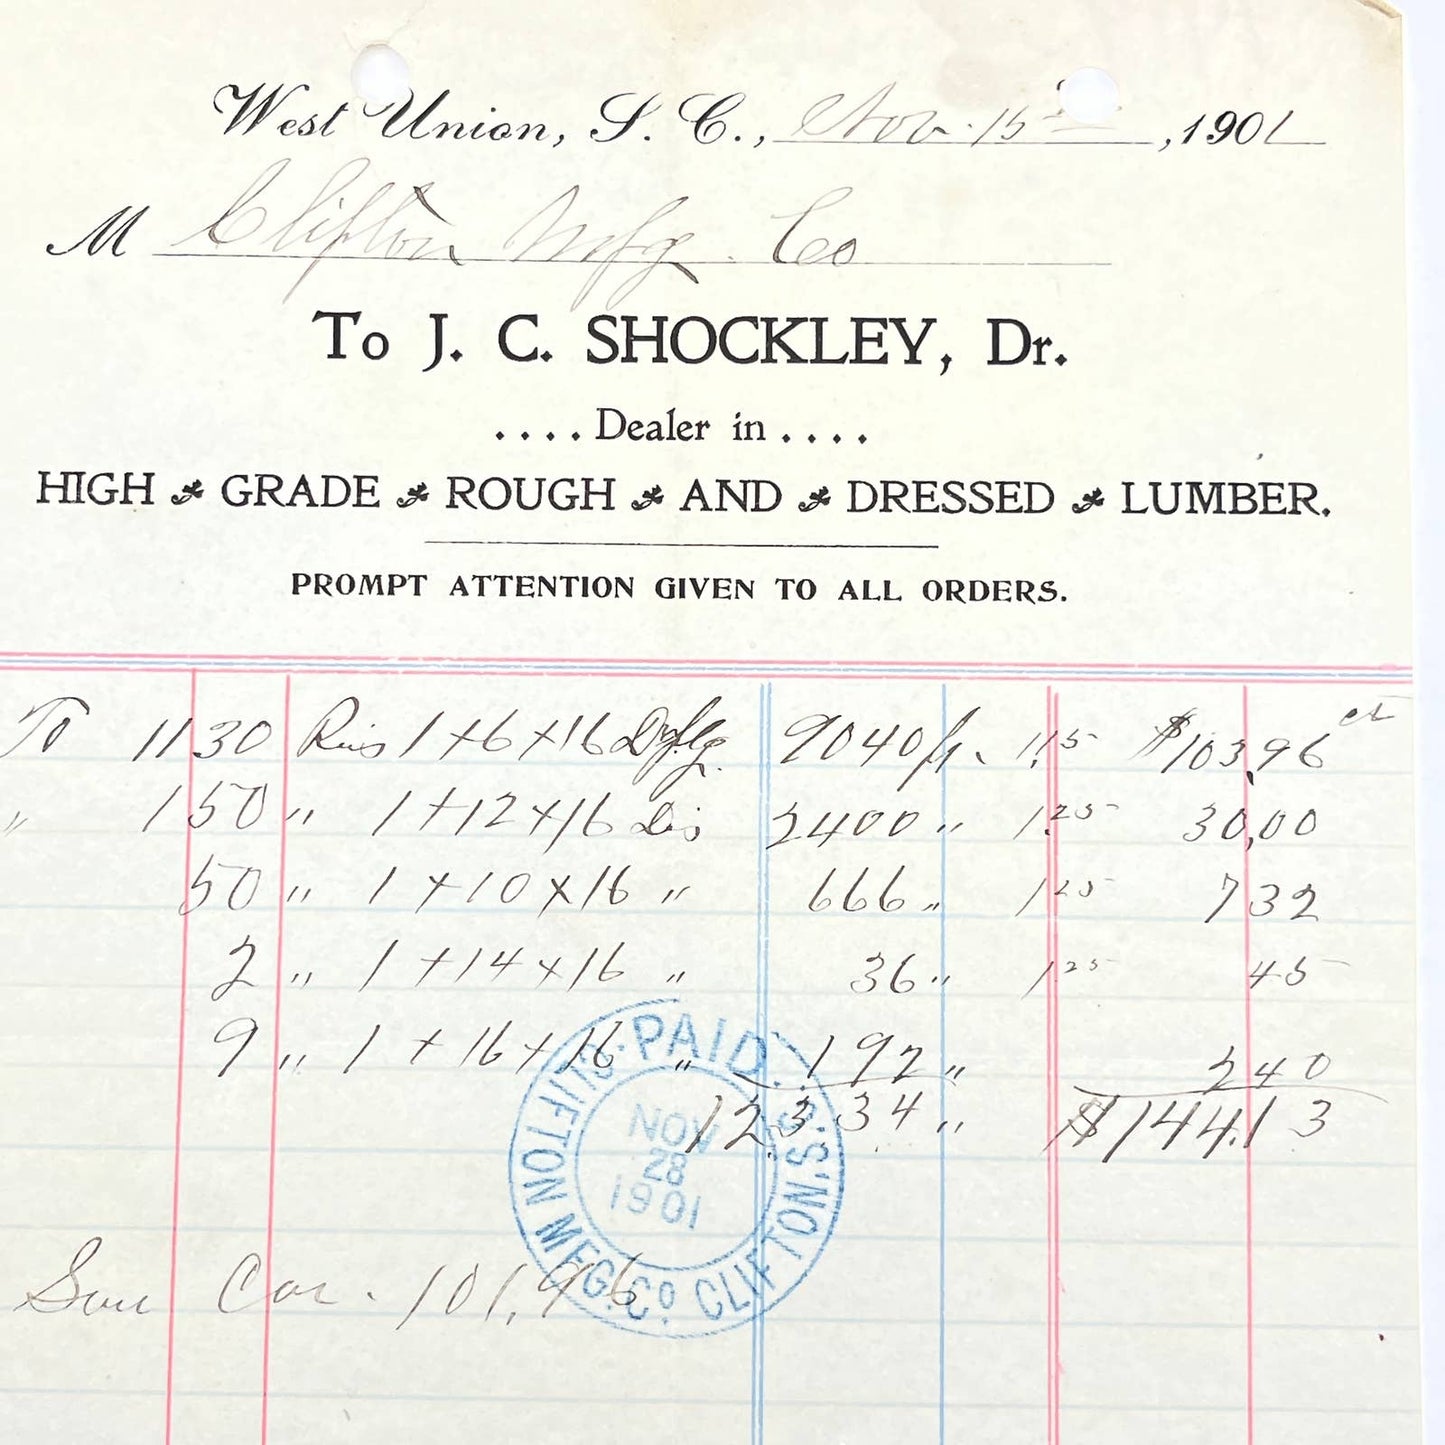 West Union, S. C., Nov. 15th, 1901
M Clifton Mfg. Co
To J. C. SHOCKLEY, Dr.
....Dealer in....
HIGH GRADE ROUGH AND DRESSED LUMBER.
PROMPT ATTENTION GIVEN TO ALL ORDERS.
To 1130 1+6+16 9040 ft. 1.15 $103,96
" 150 " 1+12+16 2400 " 1.25 30,00
50 " 1+10x16 " 666 " 1 25 7 32
2 " 1+14x16 " 36 " 1 25 45
9 " 1+16+16 " 192 " 2 40
12334 " $144.13
Car. 101,
CLIFTON MFG. Co. CLIFTON, S. C. PAID.
NOV
28
1901